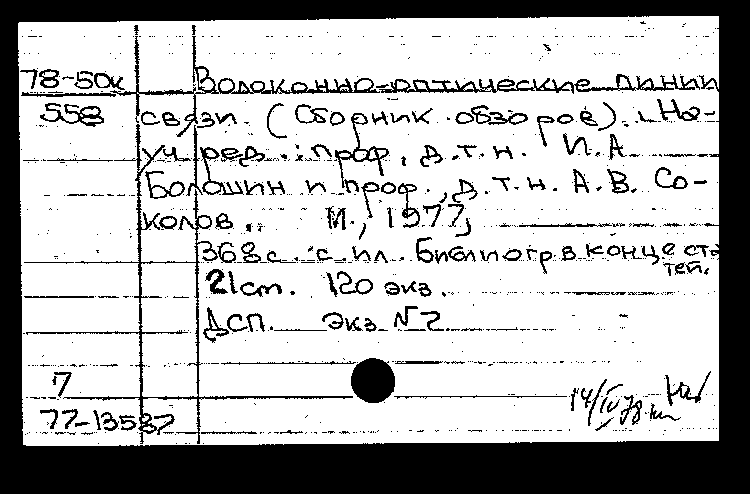 78-50к Волоконно-оптические линии
558 связи. (Сборник обзоров). На-
уч ред.: проф., д.т.н. И.А.
Болошин и проф., д.т.н. А.В. Со-
колов. М., 1977,
368 с. с ил. Библиогр в конце ста
тей.
21 ст. 120 экз.
ДСП. Экз N 2
7
14/IV 78
77-13587